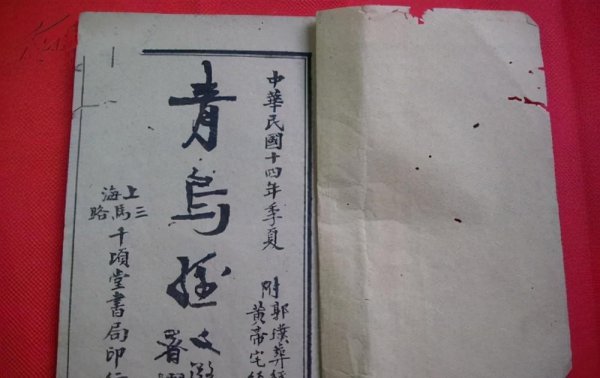 中華民國十四年季夏
附
郭璞葬經
黃帝宅經
青烏經
文
署
上海
三馬路
千頃堂書局印行